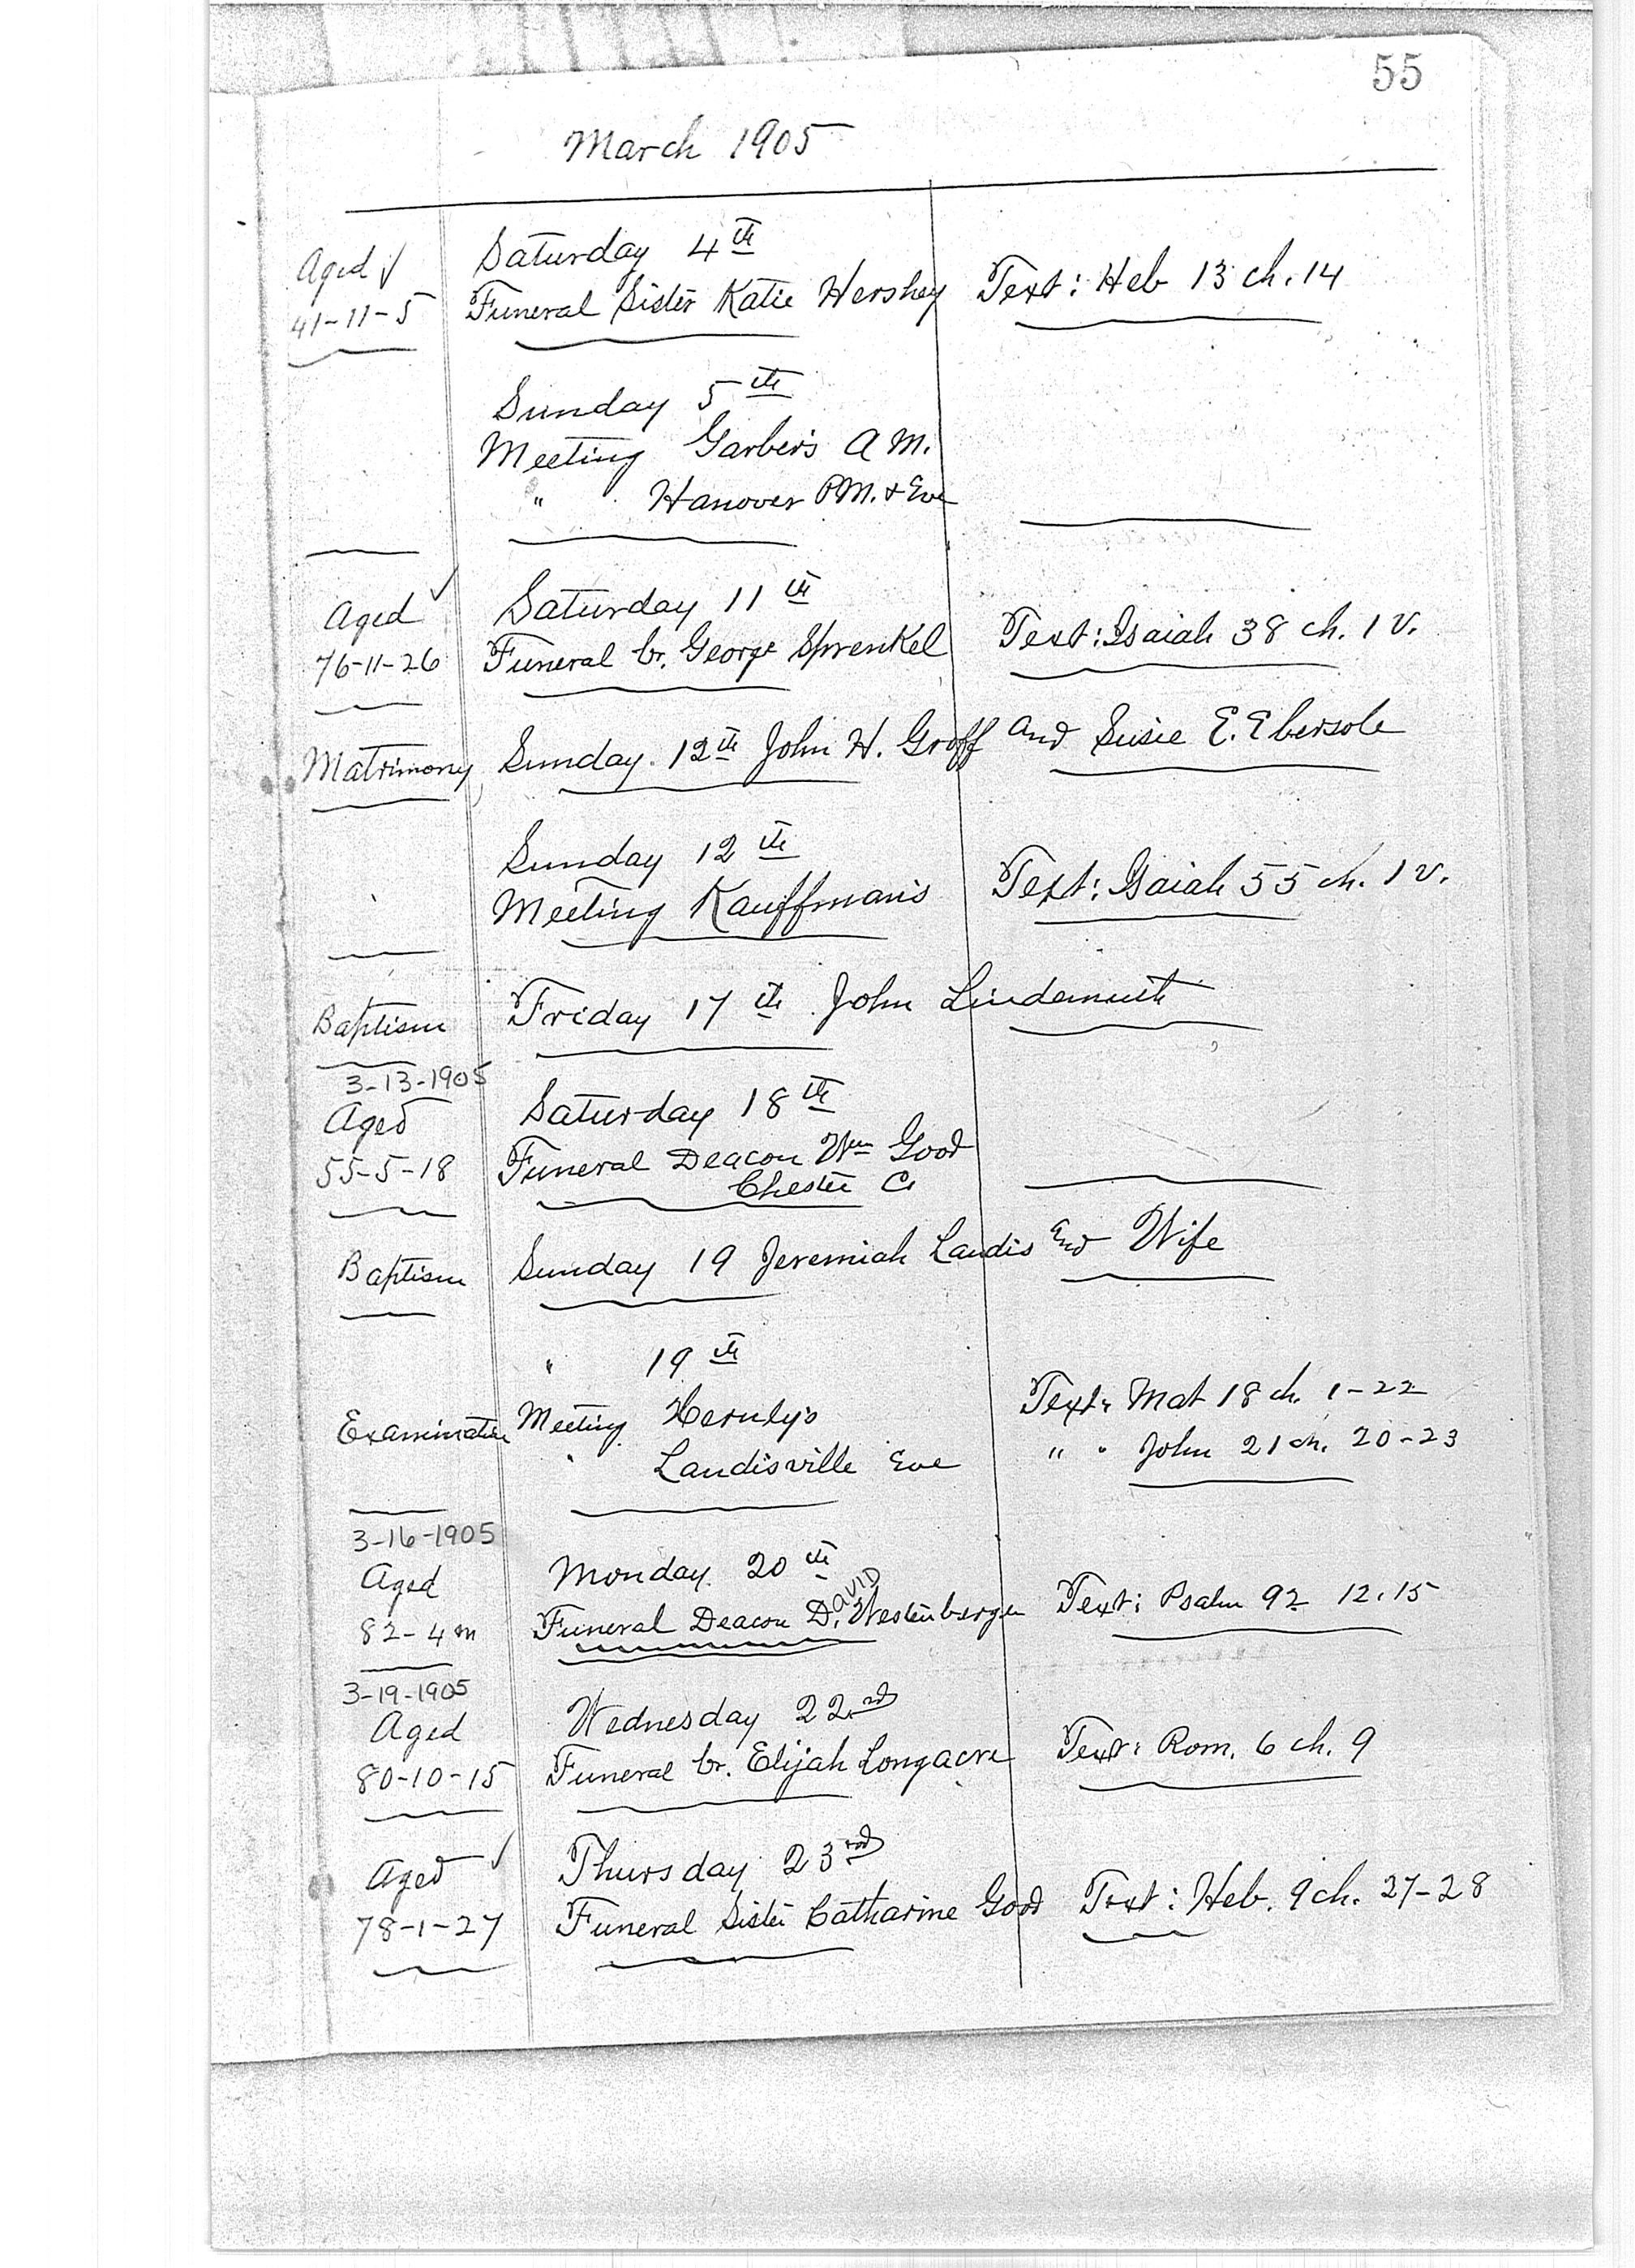 55
March 1905
Saturday 4th
Aged √
41-11-5 Funeral Sister Katie Hershey Text: Heb 13 ch. 14
Sunday 5th
Meeting Garber's A M.
" Hanover P.M. & Eve
Aged √ Saturday 11th
76-11-26 Funeral br. George Sprenkel Text: Isaiah 38 ch. 1 v.
Matrimony Sunday. 12th John H. Groff and Susie E. Ebersole
Sunday 12th
Meeting Kauffman's Text: Isaiah 55 ch. 1 v.
Baptism Friday 17th John Lindemuth
3-13-1905
Aged Saturday 18th
55-5-18 Funeral Deacon Wm Good
Chester Co
Baptism Sunday 19 Jeremiah Landis and Wife
" 19th
Examination Meeting Hernly's Text: Mat 18 ch. 1-22
" Landisville Eve " " John 21 ch. 20-23
3-16-1905
Aged Monday 20th
82-4m Funeral Deacon D.AVID Westenberger Text: Psalm 92 12.15
3-19-1905
Aged Wednesday 22nd
80-10-15 Funeral br. Elijah Longacre Text: Rom. 6 ch. 9
Aged √ Thursday 23rd
78-1-27 Funeral Sister Catharine Good Text: Heb. 9 ch. 27-28